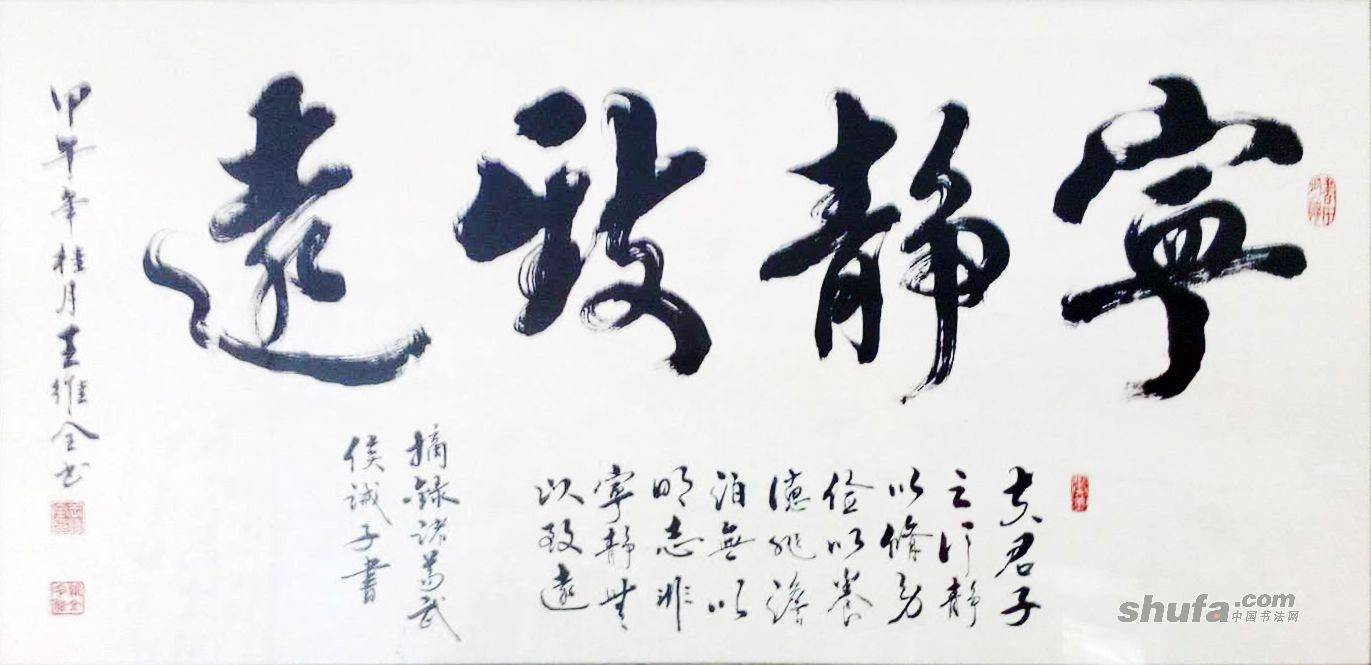 寧靜致遠
夫君子
之行靜
以修身
儉以養
德非澹
泊無以
明志非
寧靜無
以致遠
摘錄諸葛武
侯誡子書
甲午年桂月王維全書
shufa.com
中国书法网